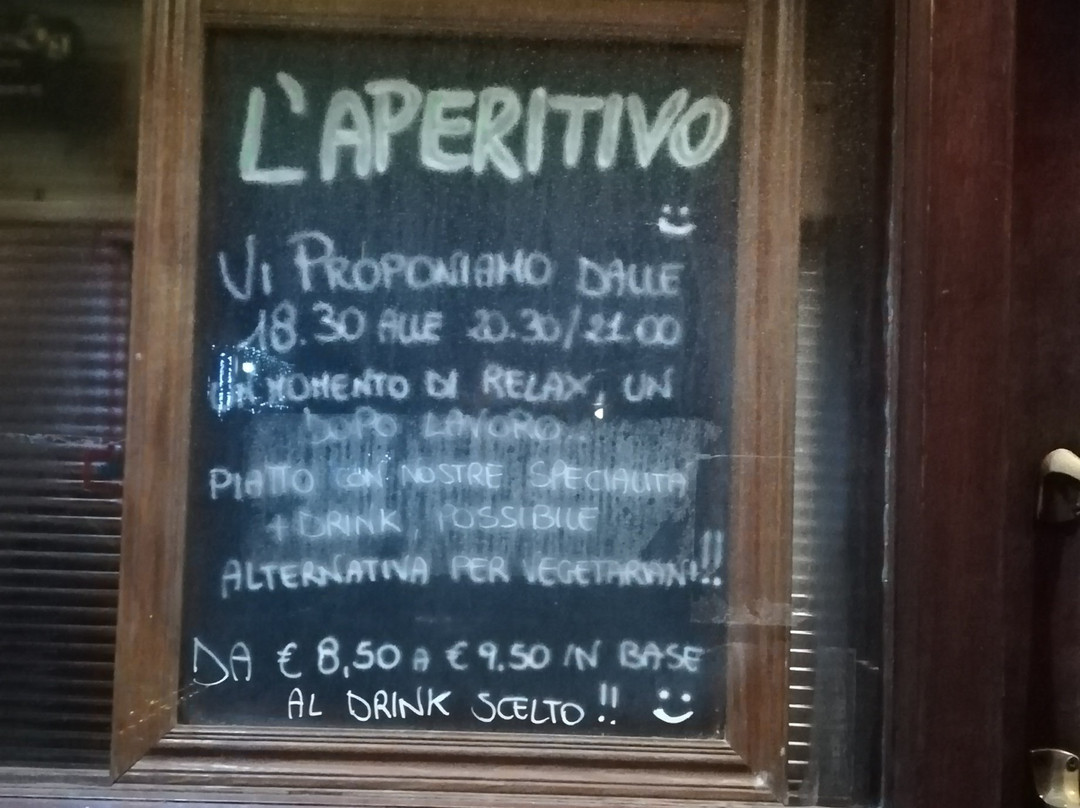 L'APERITIVO
VI PROPONIAMO DALLE
18.30 ALLE 20.30/21.00
UN MOMENTO DI RELAX, UN
DOPO LAVORO...
PIATTO CON NOSTRE SPECIALITA'
+ DRINK, POSSIBILE
ALTERNATIVA PER VEGETARIANI!!
DA € 8,50 A € 9.50 IN BASE
AL DRINK SCELTO!!